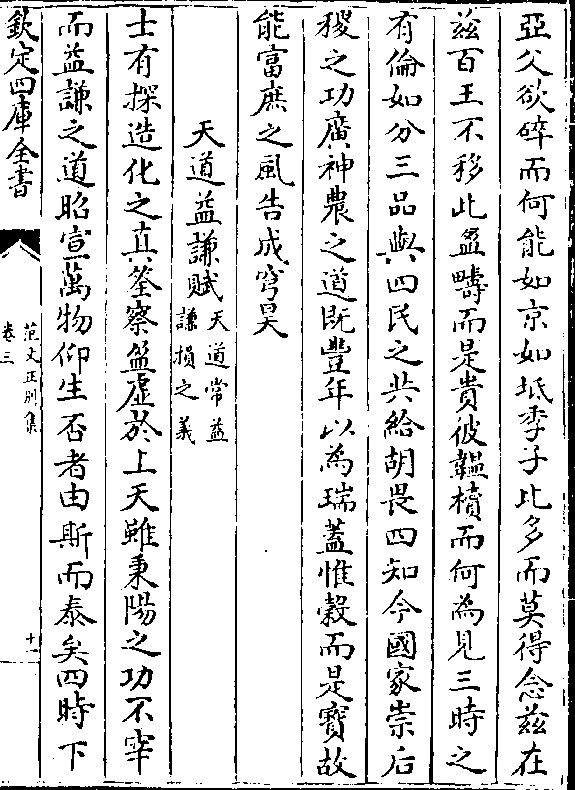 亞父欲碎而何能如京如坻季子比多而莫得念兹在
兹百王不移此盈疇而是貴彼韞櫝而何為見三時之
有倫如分三品與四民之共給胡畏四知今國家崇后
稷之功廣神農之道既豐年以為瑞蓋惟穀而是寶故
能富庶之風告成穹昊
天道益謙賦天道常益
謙損之義
士有探造化之真筌察盈虛於上天雖秉陽之功不宰
而益謙之道昭宣萬物仰生否者由斯而泰矣四時下
欽定四庫全書
范文正別集
卷三
十一